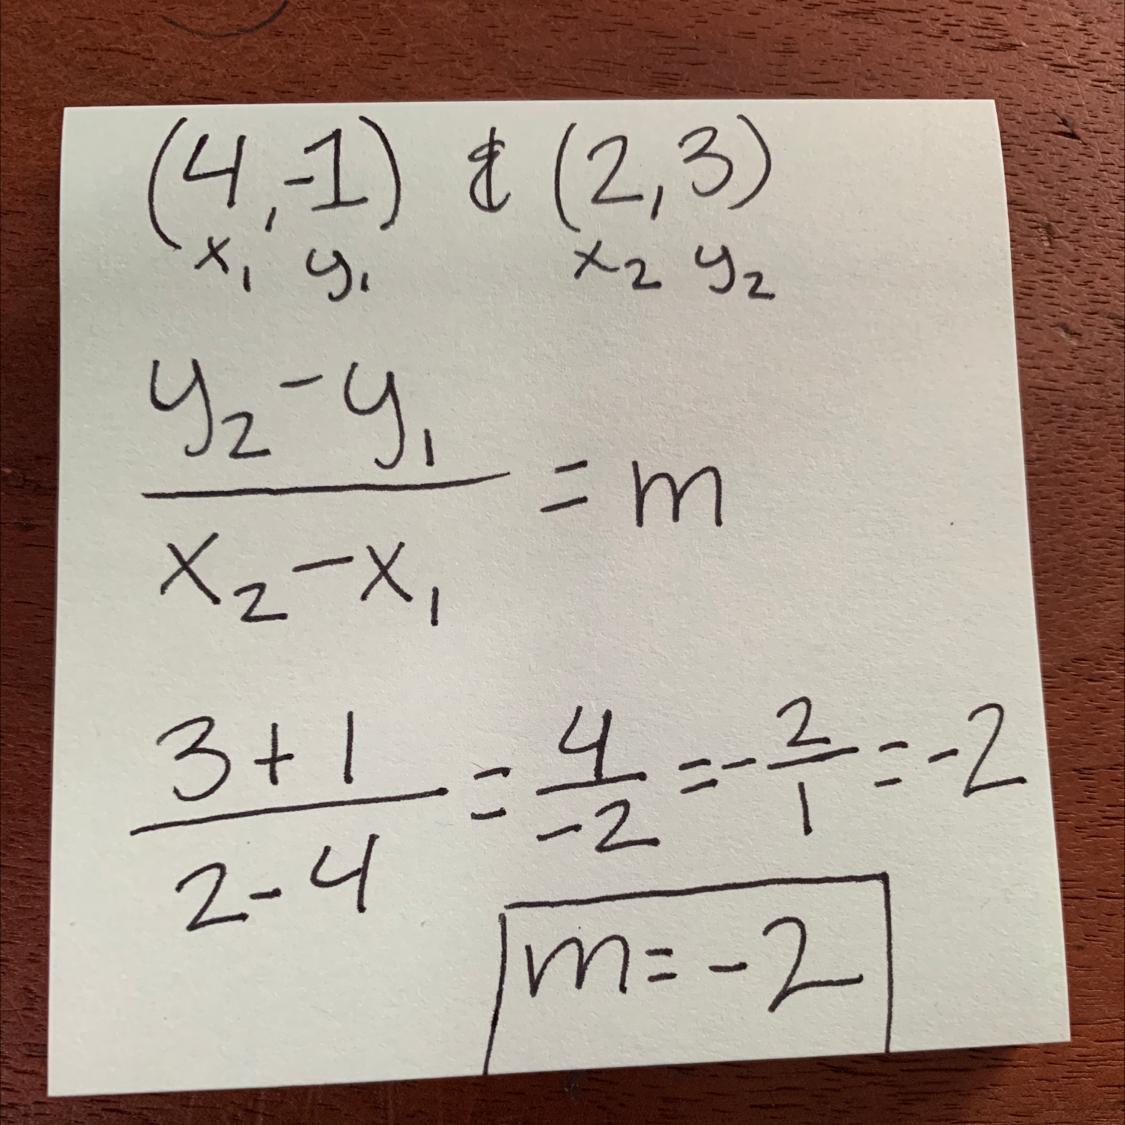 (4,-1) & (2,3)
x₁ y₁ x₂ y₂
y₂-y₁
= m
x₂-x₁
3+1 4 2
= =- =-2
2-4 -2 1
m=-2